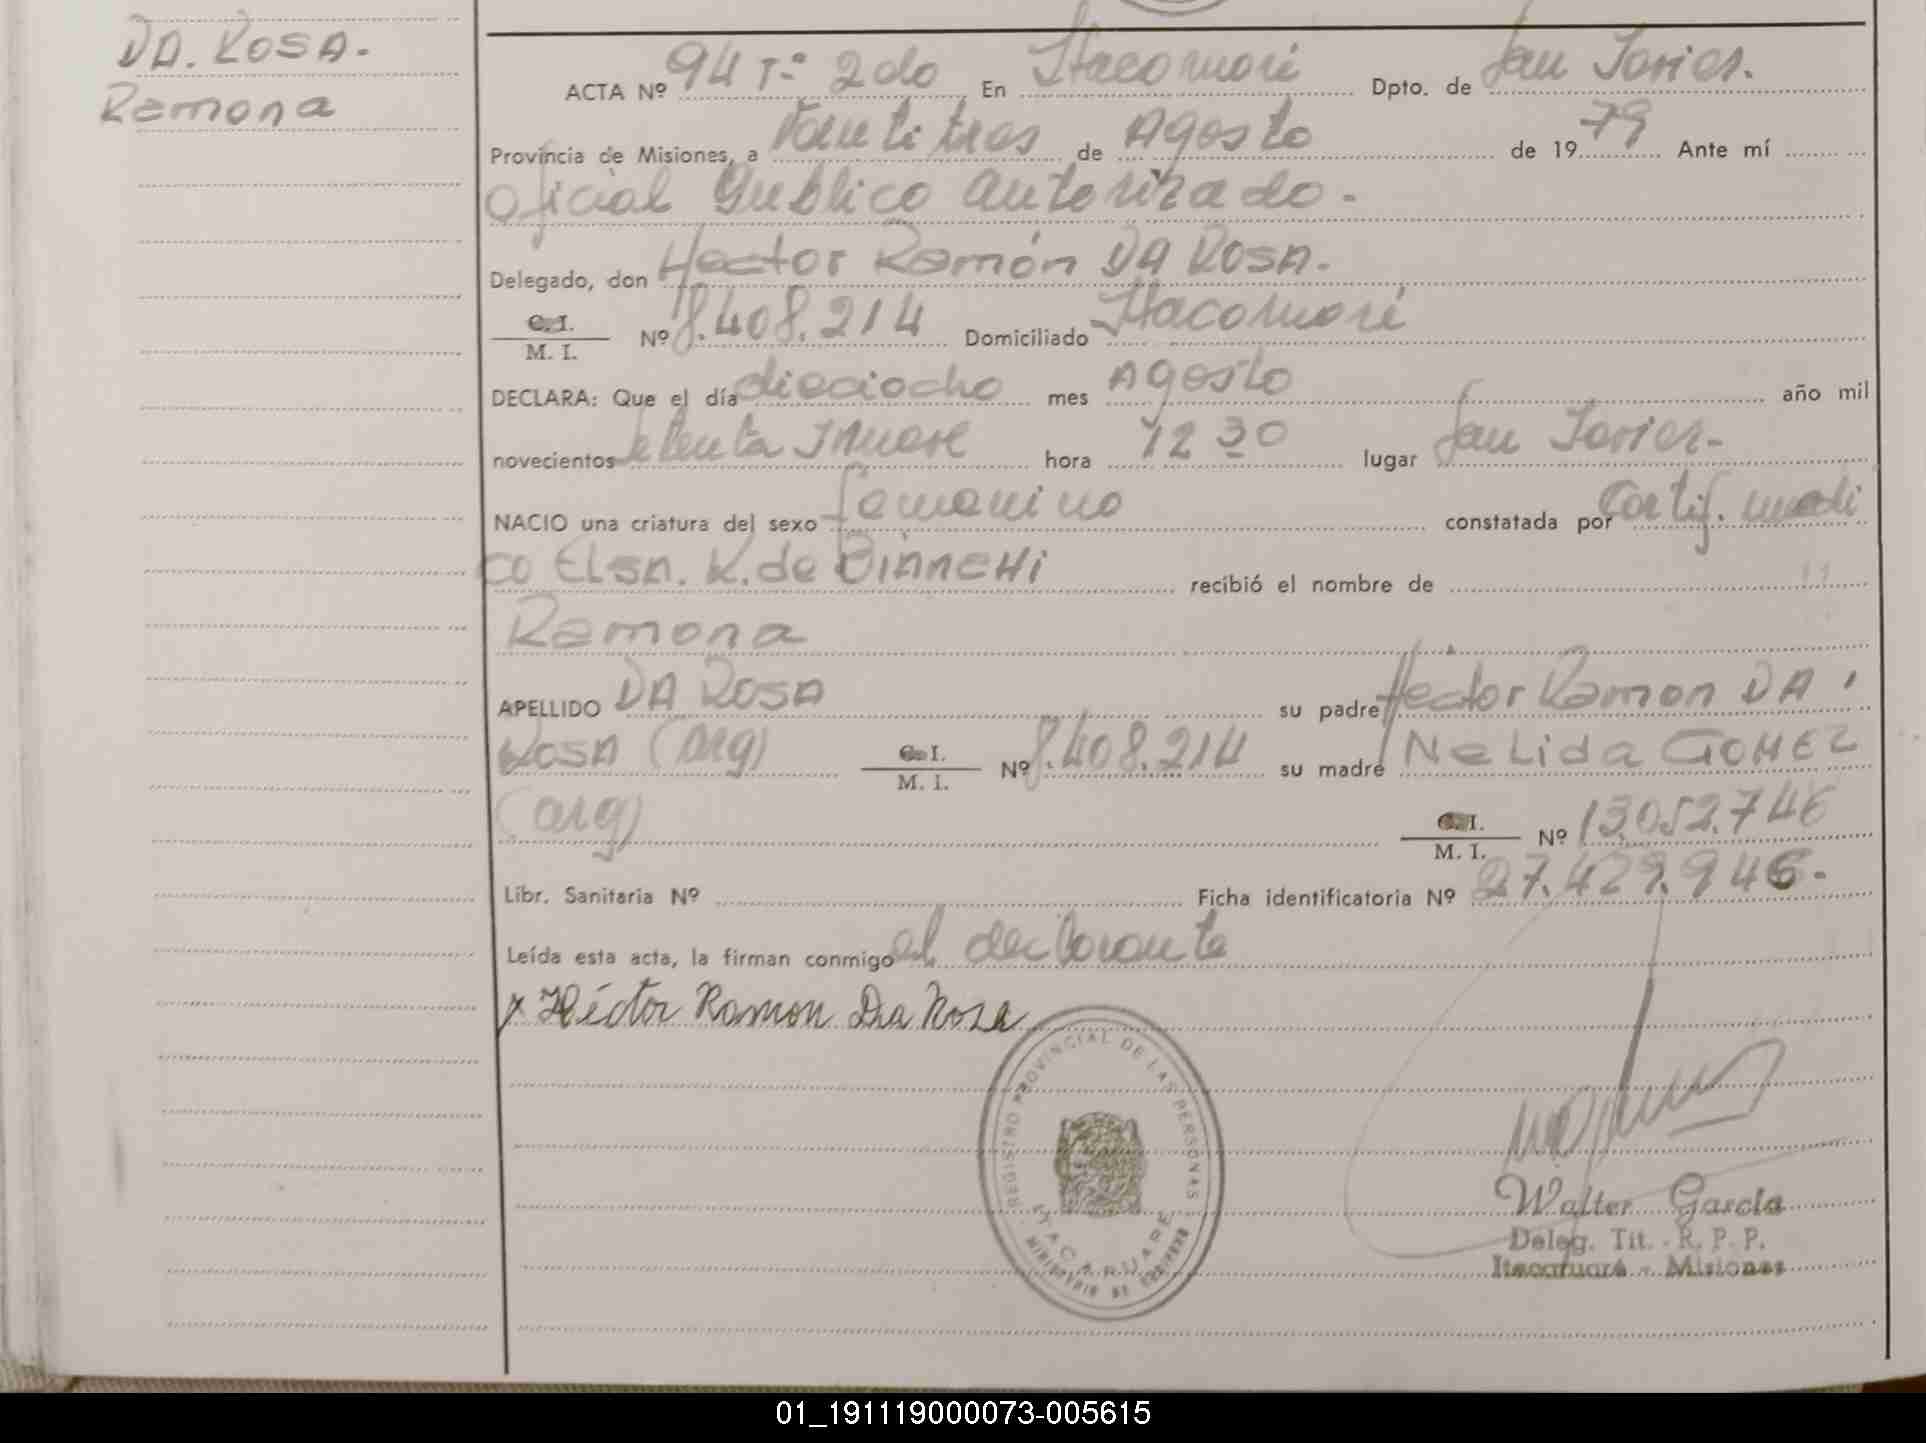 DA. ROSA.
Ramona
ACTA Nº 94 Tº 2do En Itacaruaré Dpto. de San Javier.
Provincia de Misiones, a Veintitres de Agosto de 1979 Ante mí
Oficial Público Autorizado.
Delegado, don Hector Ramón DA ROSA.
C. I.
M. I. Nº 8.408.214 Domiciliado Itacaruaré
DECLARA: Que el día dieciocho mes Agosto año mil
novecientos setenta y nueve hora 12 30 lugar San Javier-
NACIO una criatura del sexo femenino constatada por Certif. medi
co Elsa. K. de BiANCHi recibió el nombre de
Ramona
APELLIDO DA ROSA su padre Héctor Ramon DA
ROSA (Arg) C. I. M. I. Nº 8.408.214 su madre NeLida GOMEZ
(arg) C. I. M. I. Nº 13.052.746
Libr. Sanitaria Nº Ficha identificatoria Nº 27.429.946.-
Leída esta acta, la firman conmigo el declarante
x Héctor Ramon Da Rosa
REGISTRO PROVINCIAL DE LAS PERSONAS
ITACARUARE
MINISTERIO DE GOBIERNO
Walter García
Deleg. Tit. - R. P. P.
Itacaruaré - Misiones
01_191119000073-005615